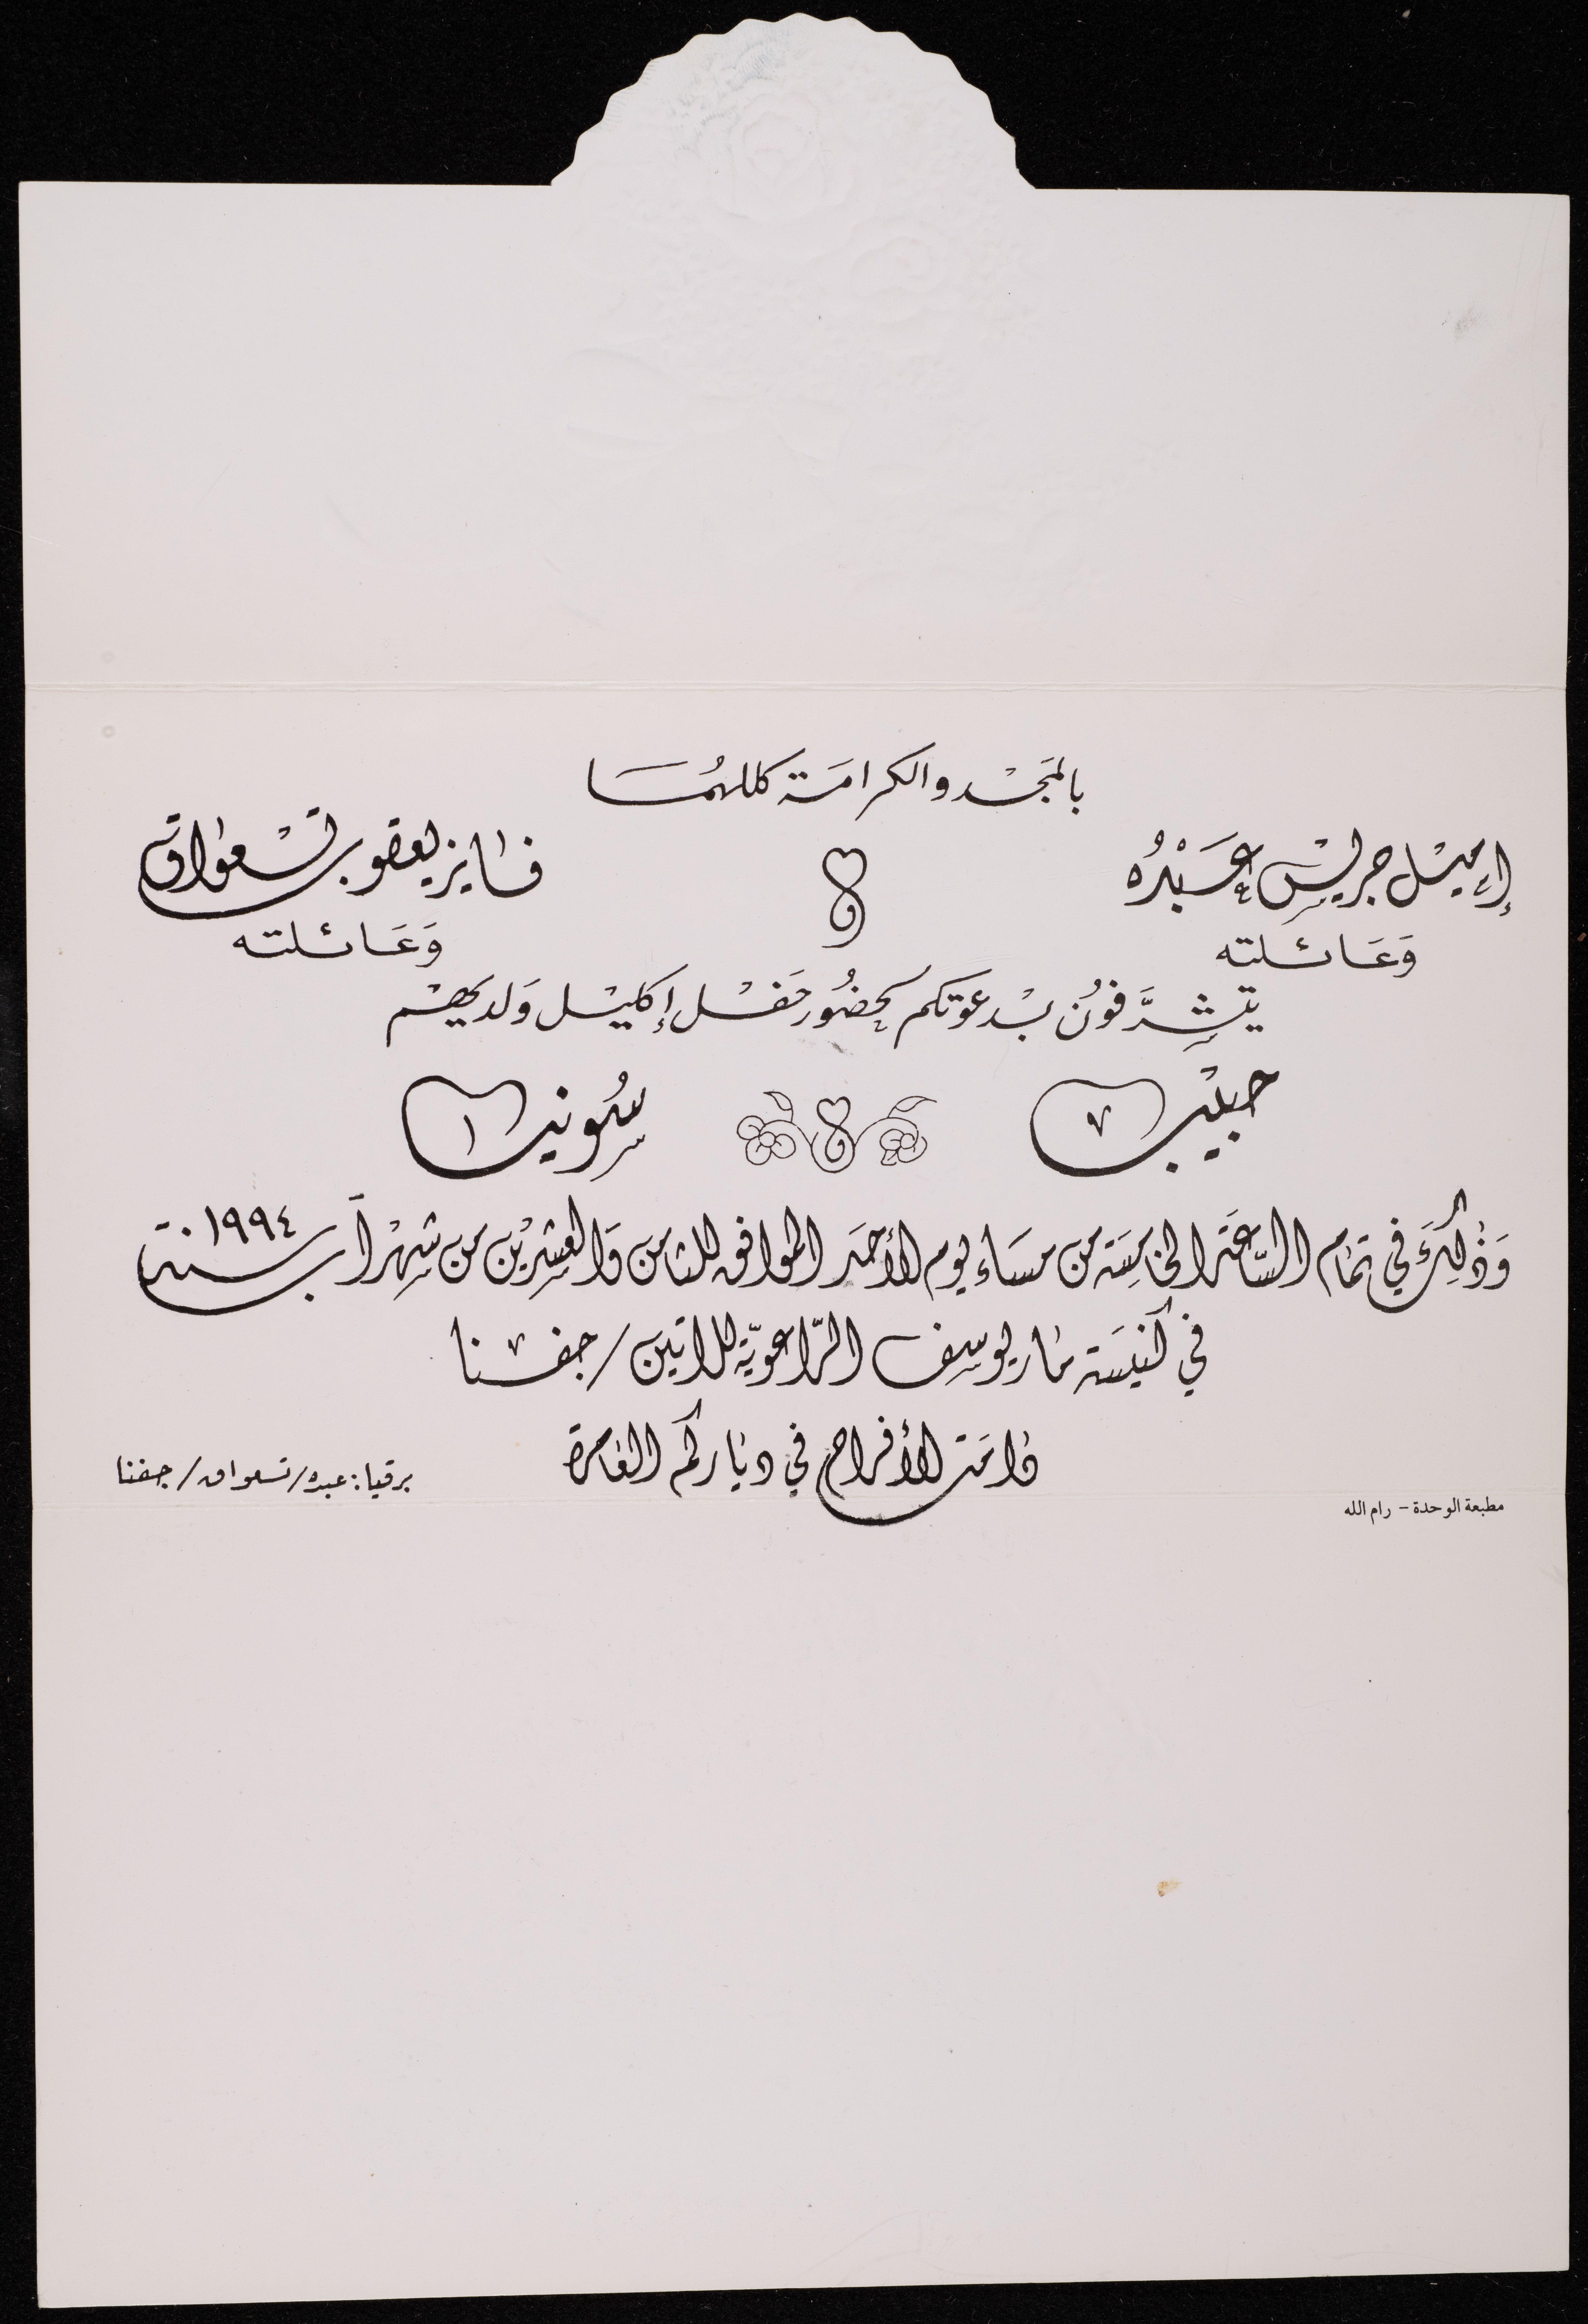 بالمَجْد والكرامَة كللهُمَا
إميْل جريْس عَبْدُه
وَعَائلته
فَايز يعقوب تسْعواق
وَعَائلته
يتشرَّفوُن بدعوَتكم لحضُور حَفْل إكليْل وَلديهمْ
حبيْب
سُونيا
وَذٰلِكَ في تمَام السَّاعَة الخامِسَة من مسَاء يوم الأحَد الموافق للثامن وَالعِشريْن من شهْر آب سنة ١٩٩٤
في كنيسَة مَار يوسِف الرّاعويّة للاتين / جفنا
دَامَت الأفراح في ديَاركم العَامرة
برقيا : عبده / تسعواق / جفنا
مطبعة الوحدة - رام الله